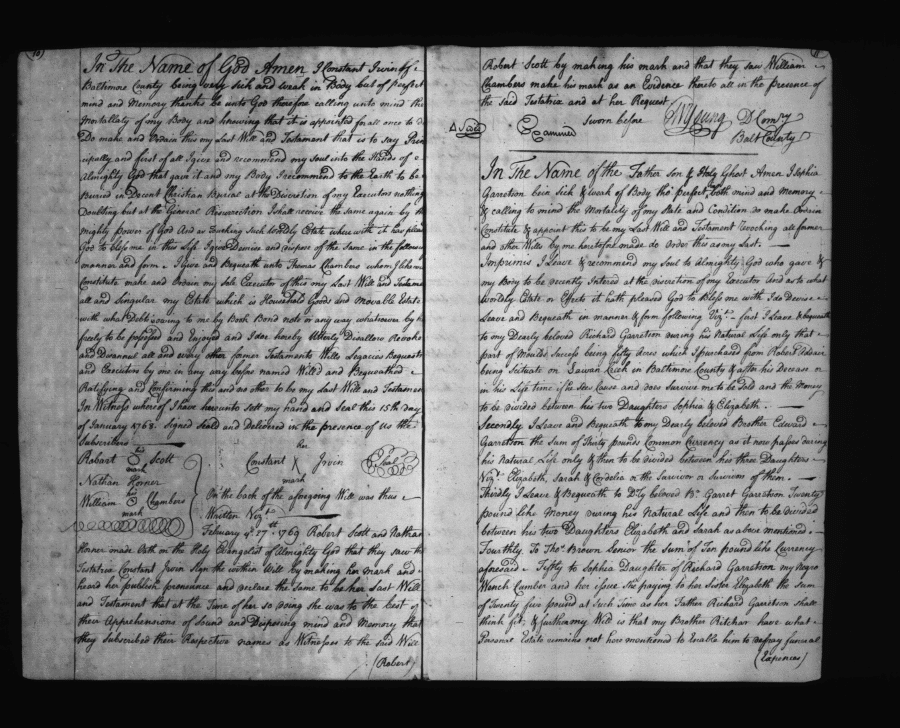 In The Name of God Amen I Constant Irvin of
Baltimore County being very Sick and weak in Body but of perfect
mind and Memory thanks be unto God therefore calling unto mind the
Mortallaty of my Body and knowing that it is appointed for all once to d
Do make and Ordain this my Last Will and Testament that is to say Prin
cipally and first of all I give and recommend my Soul into the Hands of
Almighty God that gave it and my Body I recommend to the Earth to be
Buried in Decent Christian Burial at the Discretion of my Executors nothing
Doubting but at the General Resurrection I shall receive the same again by th
mighty power of God And as touching such Worldly Estate where with it has pleas
God to bless me in this Life I give Demise and dispose of the same in the followin
manner and form I give and Bequeath unto Thomas Chambers whom I likewise
Constitute make and Ordain my Sole Executor of this my Last Will and Testame
all and Singular my Estate which is Household Goods and Movable Estate
with what Debts owing to me by Book Bond note or any way whatsoever by
freely to be possessed and Enjoyed and I doe hereby Utterly Disallow Revoke
and Disannul all and every other former Testaments Wills Legacies Bequests
and Executors by me in any way before named Will'd and Bequeathed
Ratifying and Confirming this and no other to be my Last Will and Testamen
In Witness whereof I have hereunto sett my hand and Seal this 15th day
of January 1768. Signed Seald and Delivered in the presence of Us the
Subscribers
Robart his mark Scott
Nathan Horner
William his mark Chambers
Constant her mark Irvin Seal
On the back of the aforegoing Will was thus
Written Vizt
February ye 27th 1769 Robert Scott and Nathan
Horner made Oath on the Holy Evangelist of Almighty God that they saw the
Testatrix Constant Irvin Sign the within Will by making her mark and
heard her publish pronounce and declare the Same to be her Last Will
and Testament that at the Time of her so doing she was to the best of
their Apprehensions of Sound and Disposing mind and Memory that
they Subscribed their Respective names as Witnesses to the said Will
(Robert)
Robert Scott by making his mark and that they saw William
Chambers make his mark as an Evidence thereto all in the presence of
the Said Testatrix and at her Request
Sworn before Young D Comry
Examined Balt County
In The Name of the Father Son & Holy Ghost Amen I Sophia
Garretson bein Sick & weak of Body tho' perfect both mind and Memory
& calling to mind the Mortality of my State and Condition do make Ordain
Constitute & appoint this to be my Last Will and Testament revoching all former
and other Wills by me heretofore made do Order this as my Last.
Imprimis I Leave & recommend my Soul to Almighty God who gave &
my Body to be decently Intered at the discretion of my Executor And as to what
Worldly Estate or Effects it hath pleased God to Bless me with I do Devise
Leave and Bequeath in manner & form following Vizt first I Leave & bequeath
to my Dearly beloved Richard Garretson during his Natural Life only that
part of Moulds Success being fifty Acres which I purchased from Robert Adair
being Setuate on Swan Creek in Baltimore County & after his Decease or
in his Life time if he see Cause and does Survive me to be Sold and the Money
to be divided between his two Daughters Sophia & Elizabeth.
Secondly I Leave and Bequeath to my Dearly beloved Brother Edward
Garretson the Sum of Thirty pounds Common Currency as it now passes during
his Natural Life only & then to be divided between his three Daughters
Vizt Elizabeth, Sarah & Cordelia or the Survivor or Survivors of them
Thirdly I Leave & Bequeath to Dly beloved Br. Garret Garretson Twenty
pound like Money during his Natural Life and then to be divided
between his two Daughters Elizabeth and Sarah as above mentioned
Fourthly. To Thos Brown Senior the Sum of Ten pound like Currency
aforesaid Fifthly to Sophia Daughter of Richard Garretson my Negro
Wench Camber and her issue She paying to her Sister Elizabeth the Sum
of Twenty five pound at Such Time as her Father Richard Garretson shall
think fit, & furthermy Will is that my Brother Ritchar have what
Personel Estate remains not here mentioned to Enable him to defray funeral
(Expences)